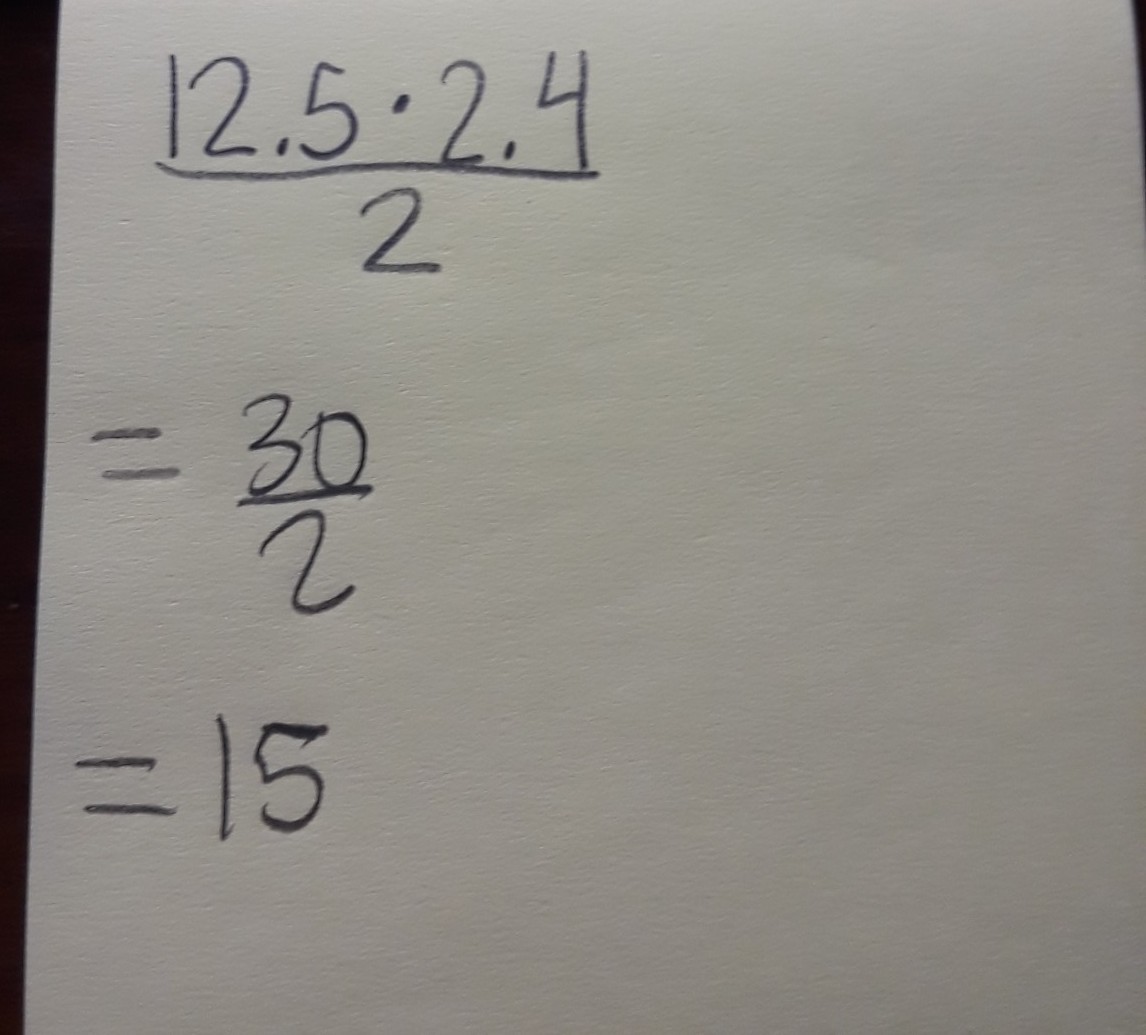 12.5·2.4
2
= 30
2
= 15